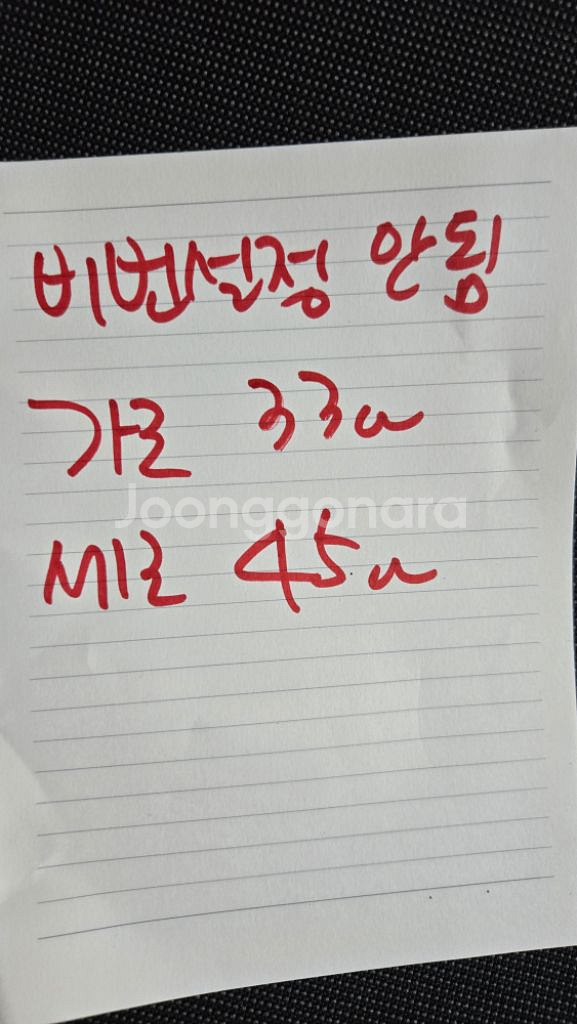 비번설정 안됨
가로 33cm
Joonggonara
세로 45cm